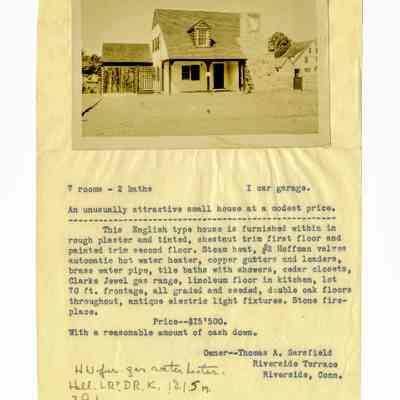 7 rooms - 2 baths 1 car garage.
An unusually attractive small house at a modest price.
This English type house is furnished within in
rough plaster and tinted, chestnut trim first floor and
painted trim second floor. Steam heat, #2 Hoffman valves
automatic hot water heater, copper gutters and leaders,
brass water pipe, tile baths with showers, cedar closets,
Clarks Jewel gas range, linoleum floor in kitchen, lot
70 ft. frontage, all graded and seeded, double oak floors
throughout, antique electric light fixtures. Stone fire-
place.
Price--$15'500.
With a reasonable amount of cash down.
Owner--Thomas A. Sarsfield
Riverside Terrace
Riverside, Conn.
gas water heater.
Hall. LR. DR. K.